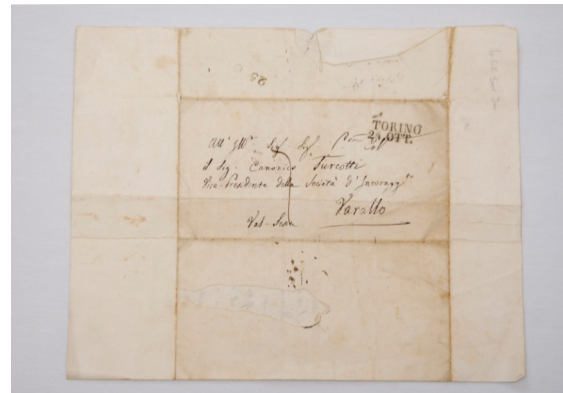 TORINO
24 OTT.
All' Ill.mo Sig. Sig.
il Sig. Canonico Turcotti
Vice-Presidente della Società d'Incoragg.
Varallo
Val-Sesia